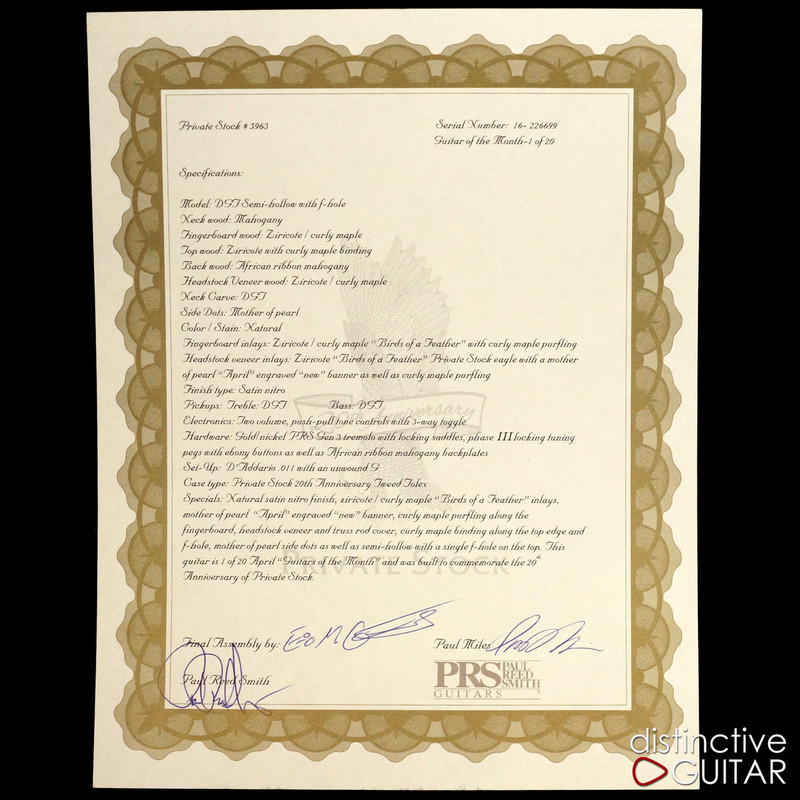 Private Stock # 5963
Serial Number: 16- 226699
Guitar of the Month-1 of 20
Specifications:
Model: DGT Semi-hollow with f-hole
Neck wood: Mahogany
Fingerboard wood: Ziricote / curly maple
Top wood: Ziricote with curly maple binding
Back wood: African ribbon mahogany
Headstock Veneer wood: Ziricote / curly maple
Neck Carve: DGT
Side Dots: Mother of pearl
Color / Stain: Natural
Fingerboard inlays: Ziricote / curly maple “Birds of a Feather” with curly maple purfling
Headstock veneer inlays: Ziricote “Birds of a Feather” Private Stock eagle with a mother
of pearl “April” engraved “new” banner as well as curly maple purfling
Finish type: Satin nitro
Pickups: Treble: DGT Bass: DGT
20th Anniversary
Electronics: Two volume, push-pull tone controls with 3-way toggle
Hardware: Gold/nickel PRS Gen 3 tremolo with locking saddles, phase III locking tuning
pegs with ebony buttons as well as African ribbon mahogany backplates
Set-Up: D'Addario .011 with an unwound G
Case type: Private Stock 20th Anniversary Tweed Tolex
Specials: Natural satin nitro finish, ziricote / curly maple “Birds of a Feather” inlays,
mother of pearl “April” engraved “new” banner, curly maple purfling along the
fingerboard, headstock veneer and truss rod cover, curly maple binding along the top edge and
f-hole, mother of pearl side dots as well as semi-hollow with a single f-hole on the top. This
guitar is 1 of 20 April “Guitars of the Month” and was built to commemorate the 20th
Private Stock
Anniversary of Private Stock.
Final Assembly by:
Paul Miles
Paul Reed Smith
PRS PAUL REED SMITH
GUITARS
distinctive
GUITAR